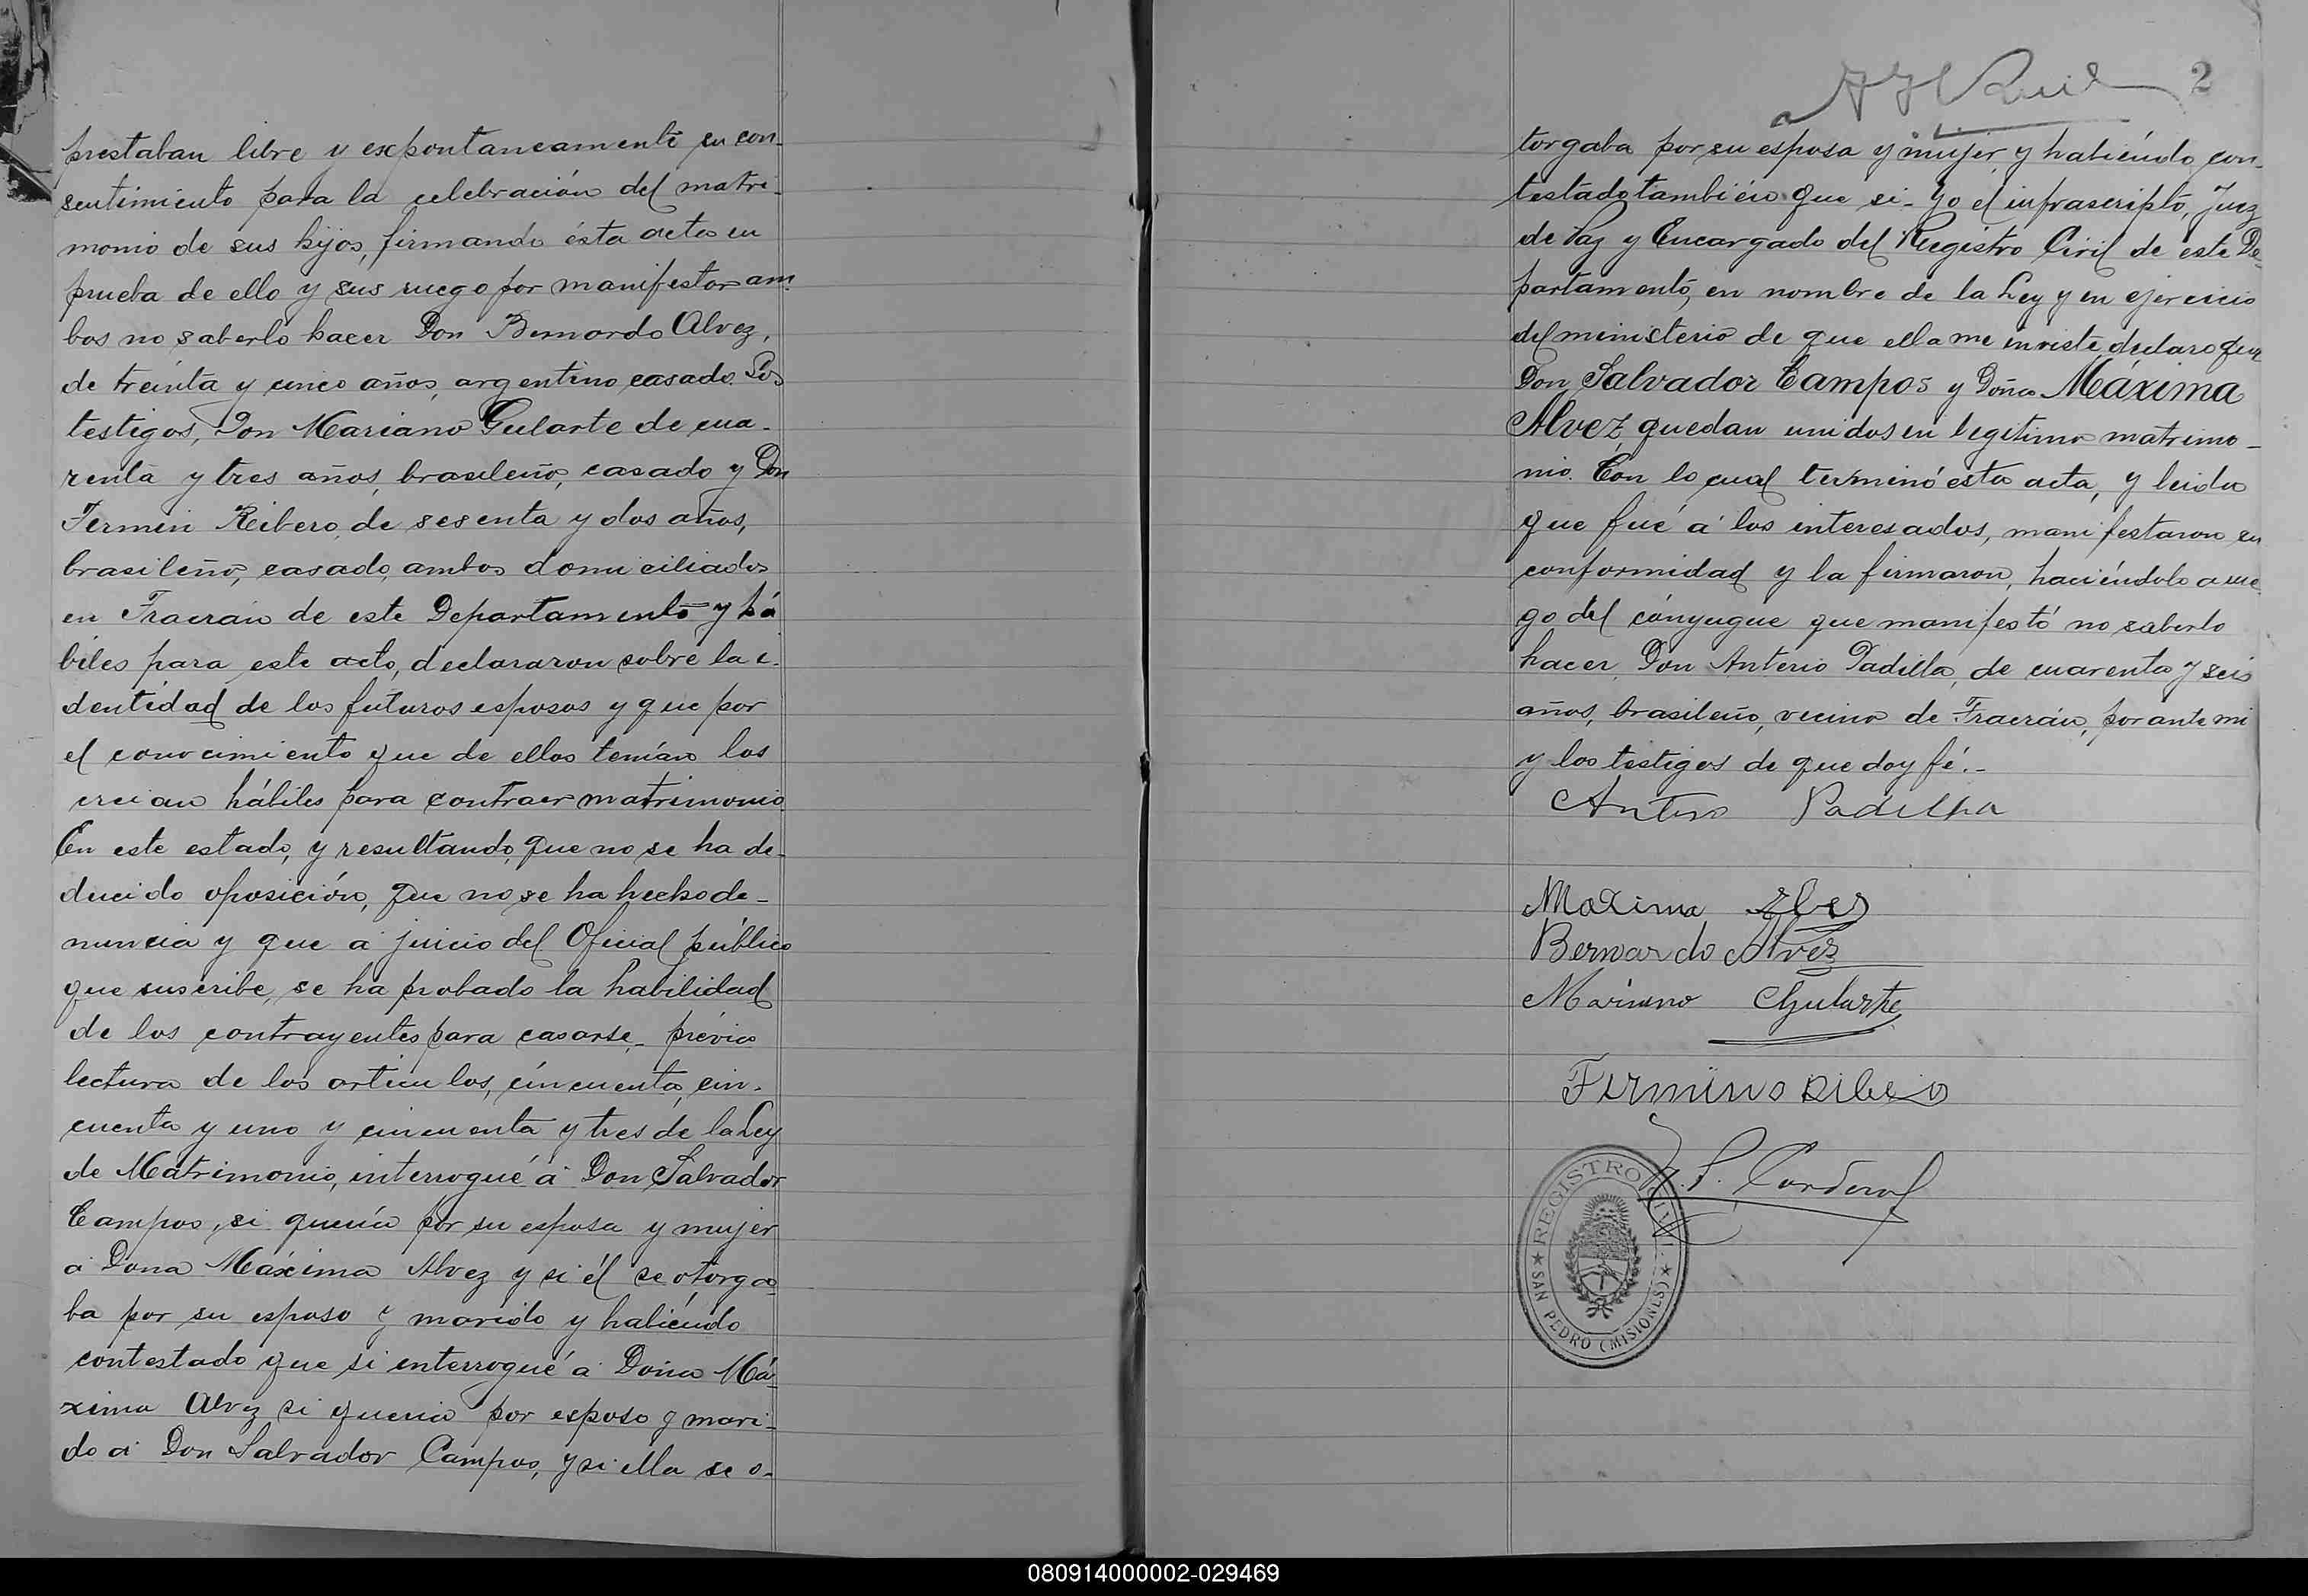 prestaban libre y expontaneamente su con-
sentimiento para la celebración del matri-
monio de sus hijos, firmando ésta acta en
prueba de ello y sus ruego por manifestar am-
bos no saberlo hacer Don Bernardo Alvez,
de treinta y cinco años, argentino casado. Los
testigos, Don Mariano Gularte de cua-
renta y tres años, brasileño, casado y Don
Fermin Ribero, de sesenta y dos años,
brasileño, casado, ambos domiciliados
en Fracrán de este Departamento y há
biles para este acto, declararon sobre la i-
dentidad de los futuros esposos y que por
el conocimiento que de ellos tenían los
creian hábiles para contraer matrimonio.
En este estado, y resultando, que no se ha de-
ducido oposición, que no se ha hecho de-
nuncia y que á juicio del Oficial público
que suscribe, se ha probado la habilidad
de los contrayentes para casarse_ prévia
lectura de los articulos, cincuenta, cin-
cuenta y uno y cincuenta y tres de la Ley
de Matrimonio, interrogué á Don Salvador
Campos, si queria por su esposa y mujer
á Dona Máxima Alvez y si él se otorga-
ba por su esposo y marido y habiéndo
contestado que si interrogué á Doña Má-
xima Alvez si queria por esposo y mari-
do á Don Salvador Campos, y si ella se o-
2
torgaba por su esposa y mujer, y habiéndo con-
testado también que si- Yo el infrascripto, Juez
de Paz y Encargado del Registro Civil de este De-
partamento, en nombre de la Ley y en ejercicio
del ministerio de que ella me inviste, declaro que
Don Salvador Campos y Doña Máxima
Alvez, quedan unidos en legítimo matrimo-
nio. Con lo cual terminó esta acta, y leida
que fué á los interesados, manifestaron su
conformidad y la firmaron, haciéndolo a rue-
go del cónyugue que manifestó no saberlo
hacer, Don Anterio Padilla, de cuarenta y seis
años, brasileño, vecino de Fracrán, por ante mi
y los testigos de que doy fé.-
Padilha
Maxima
Bernardo Alvez
Mariano Gularte
Fermino Ribeio
REGISTRO CIVIL
SAN PEDRO (MISIONES)
080914000002-029469